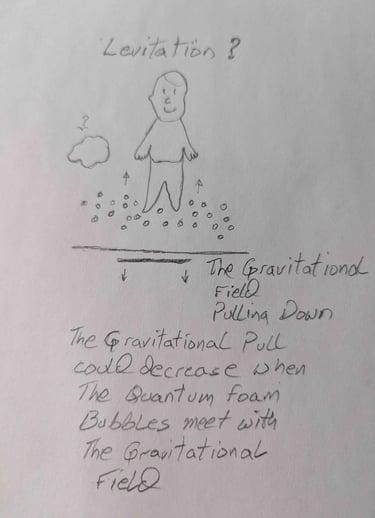 Levitation ?
?
The Gravitational
Field
Pulling Down
The Gravitational Pull
could decrease when
The Quantum foam
Bubbles meet with
The Gravitational
Field